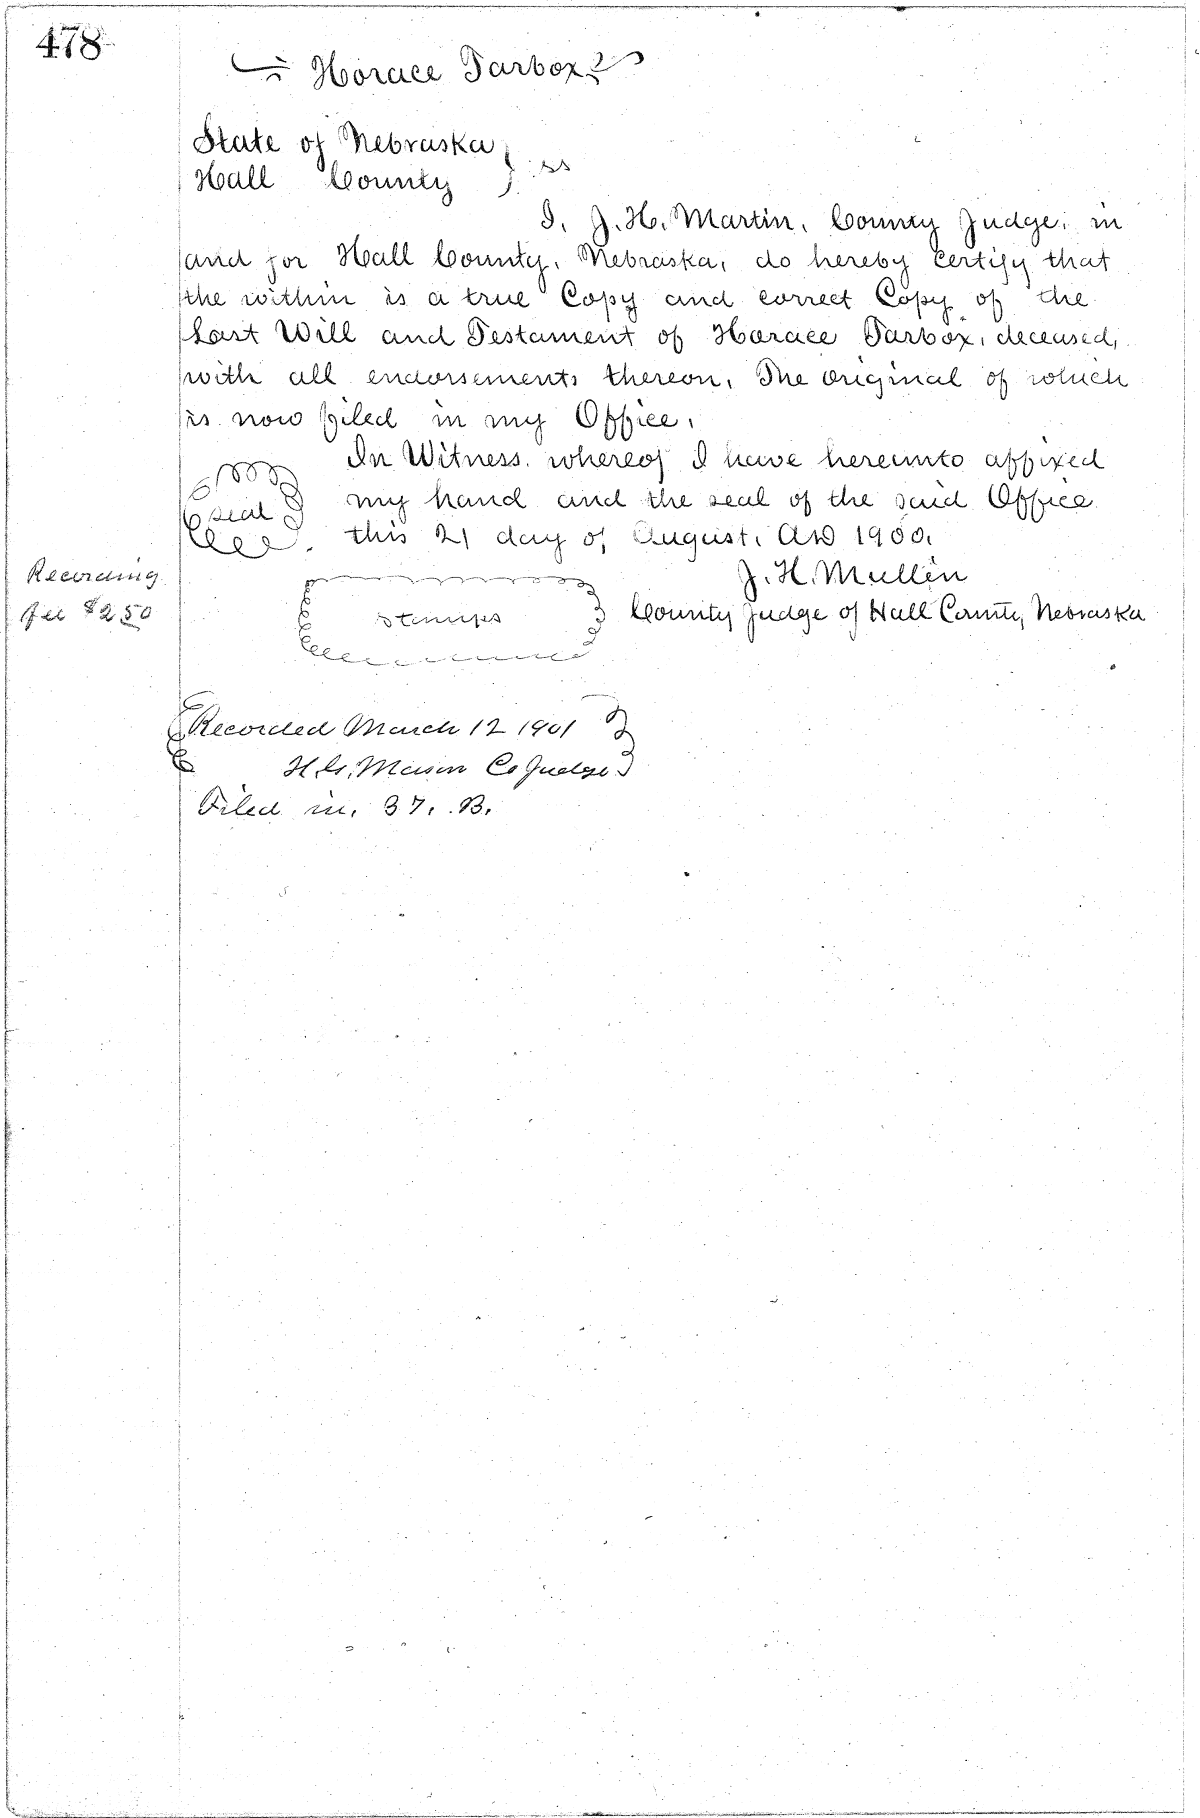 478
Horace Tarbox
State of Nebraska
Hall County } ss
I, J. H. Martin, County Judge, in
and for Hall County, Nebraska, do hereby certify that
the within is a true Copy and correct Copy of the
Last Will and Testament of Horace Tarbox, deceased,
with all endorsements thereon, The original of which
is now filed in my Office.
In Witness whereof I have hereunto affixed
seal my hand and the seal of the said Office
this 21 day of August, AD 1900.
Recording
fee $2.50
J. H. Mullin
stamps
County Judge of Hall County Nebraska
Recorded March 12 1901
Co Judge
Filed in. 37. B.